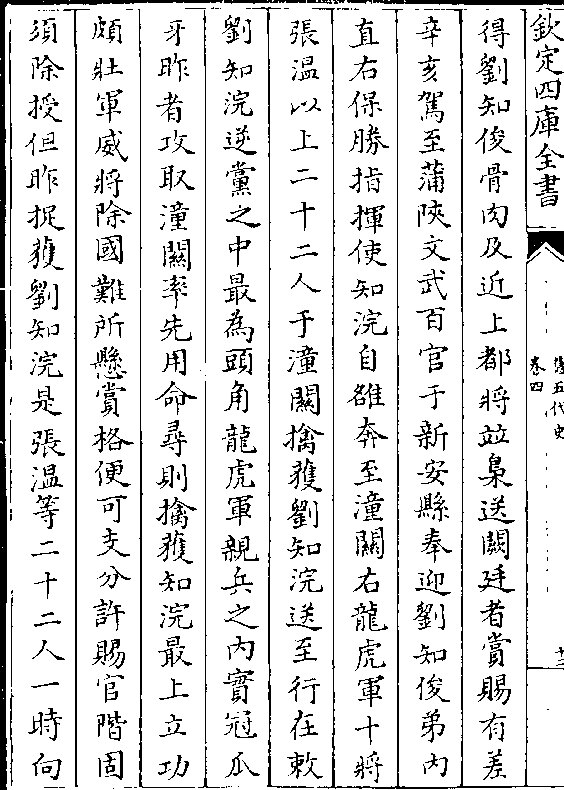 欽定四庫全書
舊五代史
卷四
十三
得劉知俊骨肉及近上都將並梟送闕廷者賞賜有差
辛亥駕至蒲陝文武百官于新安縣奉迎劉知俊弟内
直右保勝指揮使知浣自雒奔至潼關右龍虎軍十將
張溫以上二十二人于潼關擒獲劉知浣送至行在敕
劉知浣逆黨之中最為頭角龍虎軍親兵之内實冠爪
牙昨者攻取潼關率先用命尋則擒獲知浣最上立功
頗壯軍威將除國難所懸賞格便可支分許賜官階固
須除授但昨捉獲劉知浣是張溫等二十二人一時向